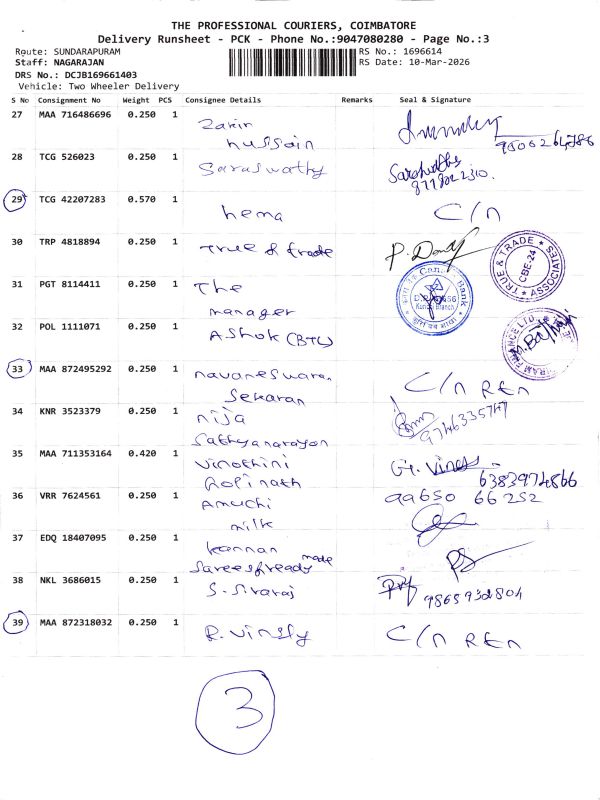 THE PROFESSIONAL COURIERS, COIMBATORE
Delivery Runsheet - PCK - Phone No.:9047080280 - Page No.:3
Route: SUNDARAPURAM
RS No.: 1696614
Staff: NAGARAJAN
RS Date: 10-Mar-2026
DRS No.: DCJB169661403
Vehicle: Two Wheeler Delivery
S No Consignment No Weight PCS Consignee Details Remarks Seal & Signature
27 MAA 716486696 0.250 1 Zakir
hussain
28 TCG 526023 0.250 1 Saraswathy
29 TCG 42207283 0.570 1 hema C/n
30 TRP 4818894 0.250 1 True & trade
TRUE & TRADE ASSOCIATES
CBE-24
31 PGT 8114411 0.250 1 The
manager
32 POL 1111071 0.250 1 Ashok (BTC)
33 MAA 872495292 0.250 1 navaneswaran C/n REn
Sekaran
34 KNR 3523379 0.250 1 nija 9746335747
Sathyanarayan
35 MAA 711353164 0.420 1 vinothini
Gopinath 6383974866
36 VRR 7624561 0.250 1 Amuchi 99650 66252
milk
37 EDQ 18407095 0.250 1 kannan
Sareesfready made
38 NKL 3686015 0.250 1 S. Sivaraj 9865932804
39 MAA 872318032 0.250 1 R. vinsly C/n REn
3